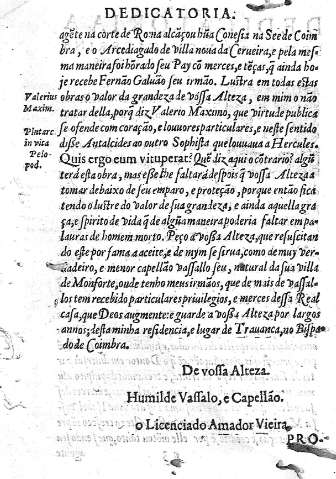 DEDICATORIA.
agẽte na corte de Roma alcãçou hũa Conesia na See de Coim
bra, e o Arcediagado de villa noua da Cerueira, e pela mes-
ma maneira foi hõrado seu Pay cõ merces, e tẽças, q̃ ainda ho
je recebe Fernão Galuão seu irmão. Lustra em todas estas
Valerius
Maxim.
obras o valor da grandeza de vossa Alteza, em mim o não
tratar della, porq̃ diz Valerio Maximo, que virtude publica
se ofende com coração, e louuores particulares, e neste sentido
Plutarc.
in vita
Pelo-
pod.
disse Antalcides ao outro Sophista que louuaua a Hercules.
Quis ergo eum vituperat? Quẽ diz aqui o cõtrario? algũ
terá esta obra, mas esse lhe faltará despois q̃ vossa Alteza a
tomar debaixo de seu emparo, e proteção, porque então fica
tendo o lustre do valor de sua grandeza, e ainda aquella gra-
ça, e spirito de vida q̃ de algũa maneira poderia faltar em pa-
lauras de homem morto. Peço a vossa Alteza, que resuscitan
do este por fama a aceite, e de mym se sirua, como de muy ver-
dadeiro, e menor capellão vassallo seu, natural da sua villa
de Monforte, onde tenho meus irmãos, que de mais de vassal-
los tem recebido particulares priuilegios, e merces dessa Real
casa, que Deos augmente: e guarde a vossa Alteza por largos
annos; desta minha residencia, e lugar de Trauanca, no Bispa
do de Coimbra.
De vossa Alteza.
Humilde Vassalo, e Capellão.
o Licenciado Amador Vieira.
PRO-